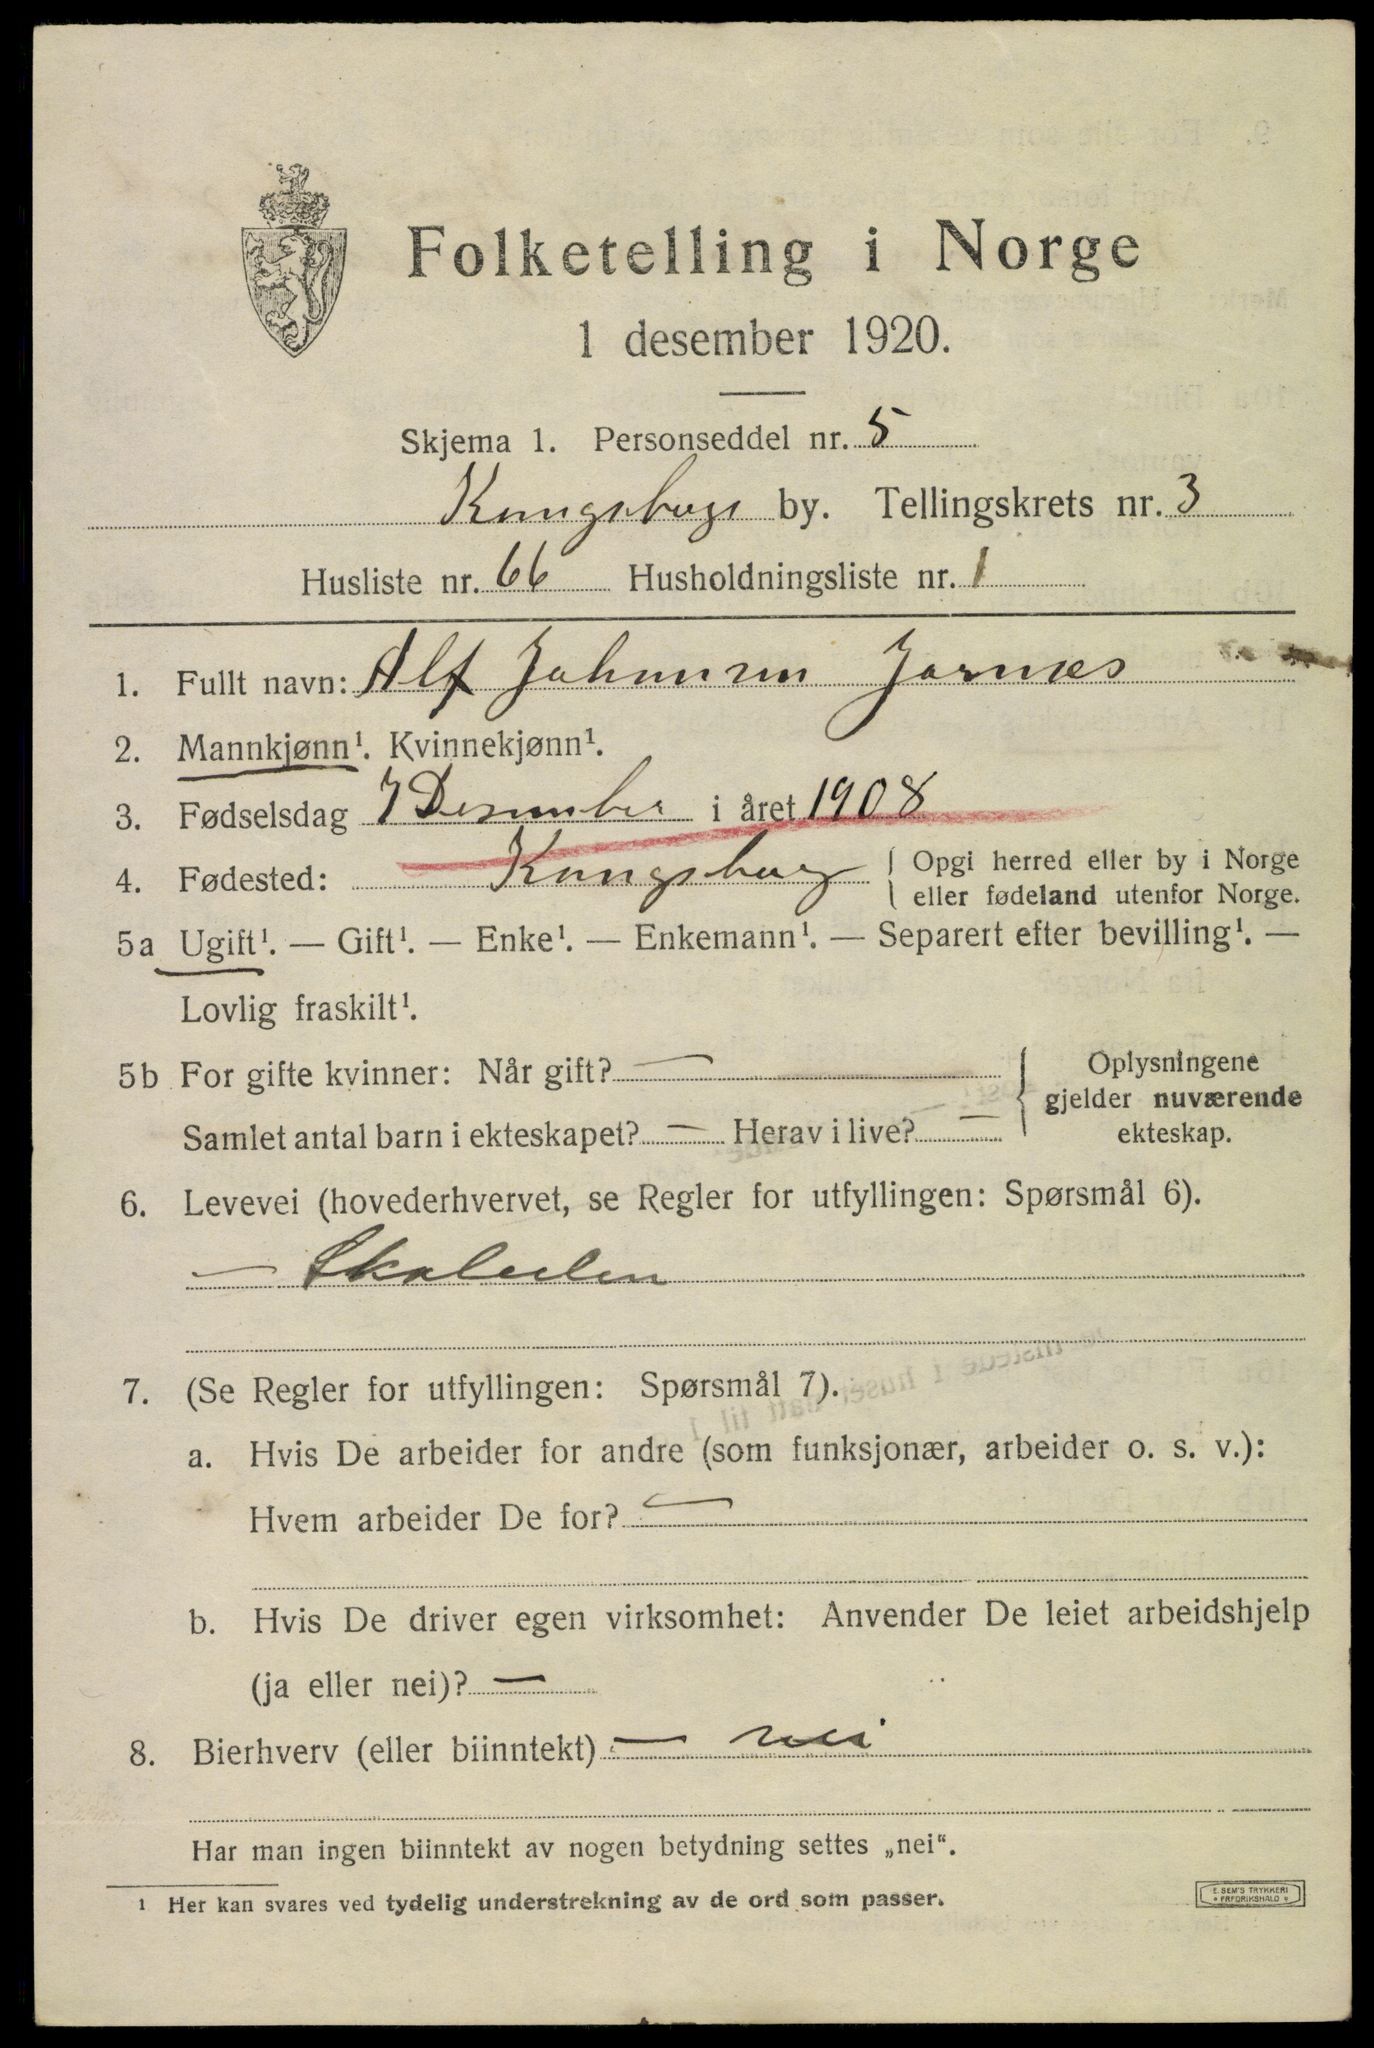 Folketelling i Norge
1 desember 1920.
Skjema 1. Personseddel nr. 5
Kongsberg by. Tellingskrets nr. 3
Husliste nr. 66 Husholdningsliste nr. 1
1. Fullt navn: Alf Johansen Jarnæs
2. Mannkjønn¹. Kvinnekjønn¹.
3. Fødselsdag 7 Desember i året 1908
4. Fødested: Kongsberg { Opgi herred eller by i Norge
eller fødeland utenfor Norge.
5a Ugift¹. — Gift¹. — Enke¹. — Enkemann¹. — Separert efter bevilling¹. —
Lovlig fraskilt¹.
5b For gifte kvinner: Når gift? —
Samlet antal barn i ekteskapet? — Herav i live? —
} Oplysningene
gjelder nuværende
ekteskap.
6. Levevei (hovederhvervet, se Regler for utfyllingen: Spørsmål 6).
— Skoleelev
7. (Se Regler for utfyllingen: Spørsmål 7).
a. Hvis De arbeider for andre (som funksjonær, arbeider o. s. v.):
Hvem arbeider De for? —
b. Hvis De driver egen virksomhet: Anvender De leiet arbeidshjelp
(ja eller nei)? —
8. Bierhverv (eller biinntekt) — nei
Har man ingen biinntekt av nogen betydning settes „nei“.
¹ Her kan svares ved tydelig understrekning av de ord som passer.
E. SEM'S TRYKKERI
FREDRIKSHALD